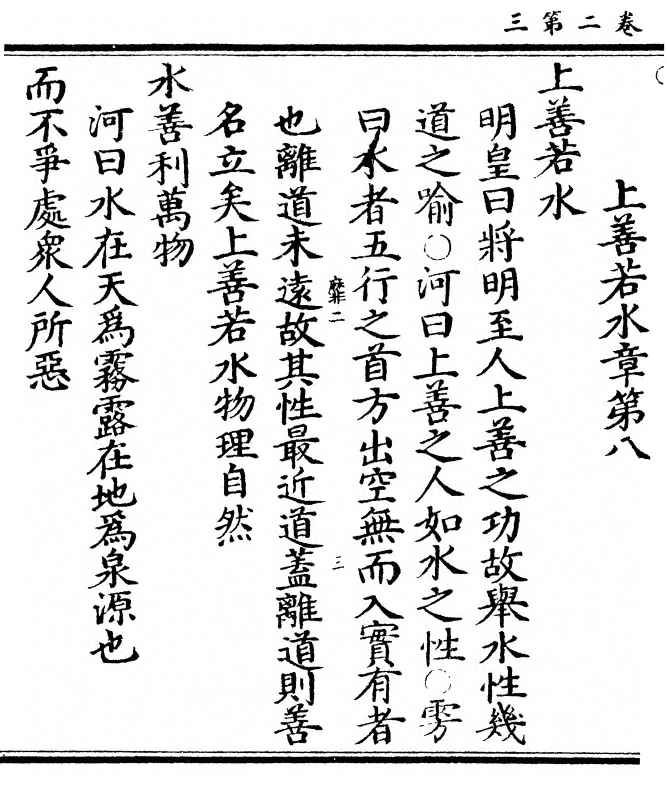 卷二第三
上善若水章第八
上善若水
明皇曰將明至人上善之功故舉水性幾
道之喻○河曰上善之人如水之性○雱
曰水者五行之首方出空無而入實有者
也離道未遠故其性最近道蓋離道則善
靡菲二
三
名立矣上善若水物理自然
水善利萬物
河曰水在天爲霧露在地爲泉源也
而不爭處衆人所惡